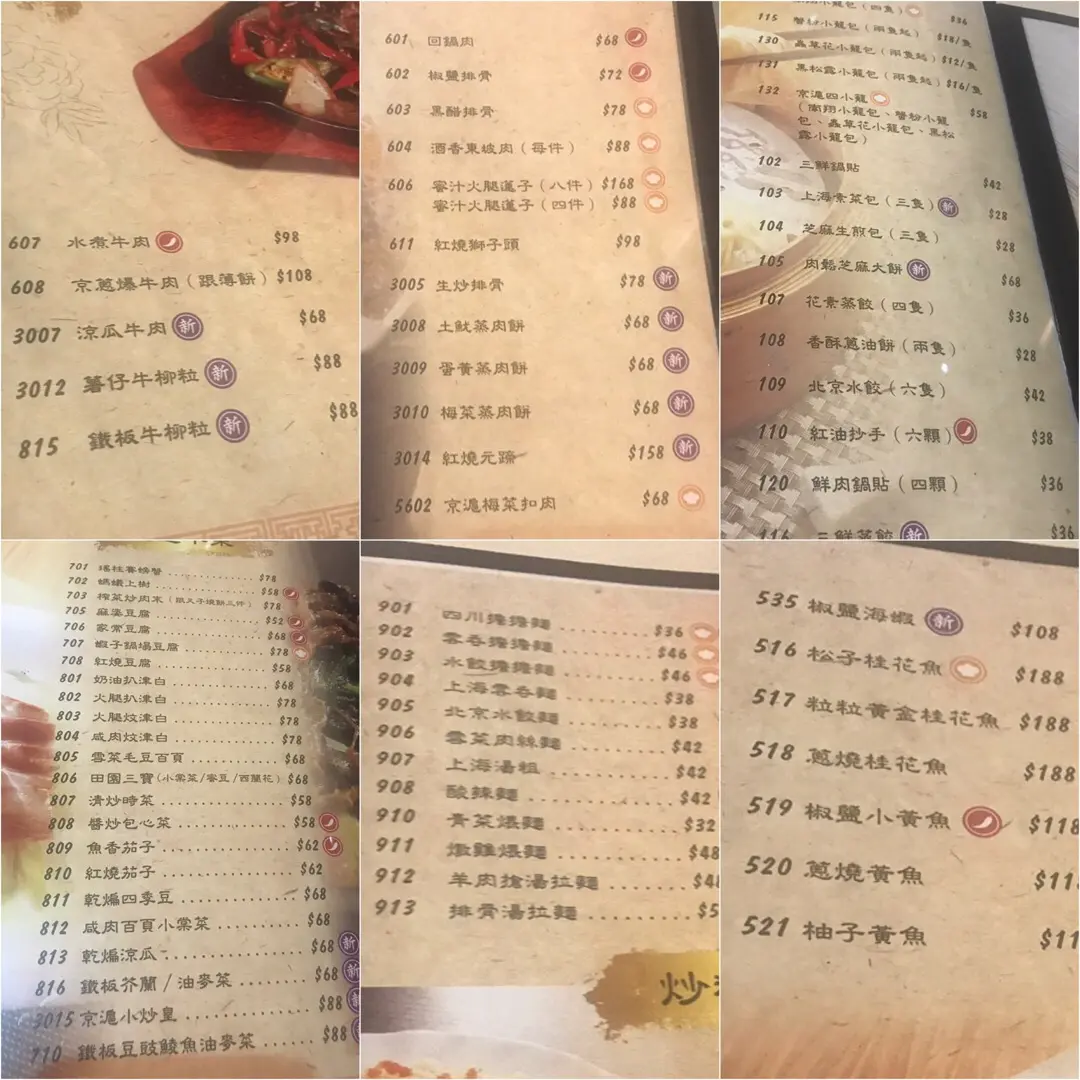 607 水煮牛肉 $98
608 京蔥爆牛肉（跟薄餅）$108
3007 涼瓜牛肉 新 $68
3012 薯仔牛柳粒 新 $88
815 鐵板牛柳粒 新 $88
601 回鍋肉 $68
602 椒鹽排骨 $72
603 黑醋排骨 $78
604 酒香東坡肉（每件）$88
606 蜜汁火腿蓮子（八件）$168
蜜汁火腿蓮子（四件）$88
611 紅燒獅子頭 $98
3005 生炒排骨 $78 新
3008 土魷蒸肉餅 $68 新
3009 蛋黃蒸肉餅 $68 新
3010 梅菜蒸肉餅 $68 新
3014 紅燒元蹄 $158 新
5602 京滬梅菜扣肉 $68
小籠包（四隻）$36
115 蟹粉小籠包（兩隻起）$18/隻
130 蟲草花小籠包（兩隻起）$12/隻
131 黑松露小籠包（兩隻起）$16/隻
132 京滬四小籠 $58
（南翔小籠包、蟹粉小籠
包、蟲草花小籠包、黑松
露小籠包）
102 三鮮鍋貼 $42
103 上海素菜包（三隻）新 $28
104 芝麻生煎包（三隻）$28
105 肉鬆芝麻大餅 新 $68
107 花素蒸餃（四隻）$36
108 香酥蔥油餅（兩隻）$28
109 北京水餃（六隻）$42
110 紅油抄手（六顆）$38
120 鮮肉鍋貼（四顆）$36
116 三鮮蒸餃 新 $36
701 瑤柱賽螃蟹 $78
702 螞蟻上樹 $58
703 榨菜炒肉末（跟叉子燒餅三件）$78
705 麻婆豆腐 $52
706 家常豆腐 $68
707 蝦子鍋塌豆腐 $78
708 紅燒豆腐 $58
801 奶油扒津白 $68
802 火腿扒津白 $78
803 火腿炆津白 $78
804 咸肉炆津白 $78
805 雪菜毛豆百頁 $68
806 田園三寶（小棠菜/蜜豆/西蘭花）$68
807 清炒時菜 $58
808 醬炒包心菜 $58
809 魚香茄子 $62
810 紅燒茄子 $62
811 乾煸四季豆 $68
812 咸肉百頁小棠菜 $68
813 乾煸涼瓜 $68 新
816 鐵板芥蘭/油麥菜 $68 新
3015 京滬小炒皇 $88 新
710 鐵板豆豉鯪魚油麥菜 $88 新
901 四川擔擔麵 $36
902 雲吞擔擔麵 $46
903 水餃擔擔麵 $46
904 上海雲吞麵 $38
905 北京水餃麵 $38
906 雪菜肉絲麵 $42
907 上海湯粗 $42
908 酸辣麵 $42
910 青菜煨麵 $32
911 燉雞煨麵 $48
912 羊肉搶湯拉麵
913 排骨湯拉麵
炒
535 椒鹽海蝦 新 $108
516 松子桂花魚 $188
517 粒粒黃金桂花魚 $188
518 蔥燒桂花魚 $188
519 椒鹽小黃魚 $118
520 蔥燒黃魚 $11
521 柚子黃魚 $11